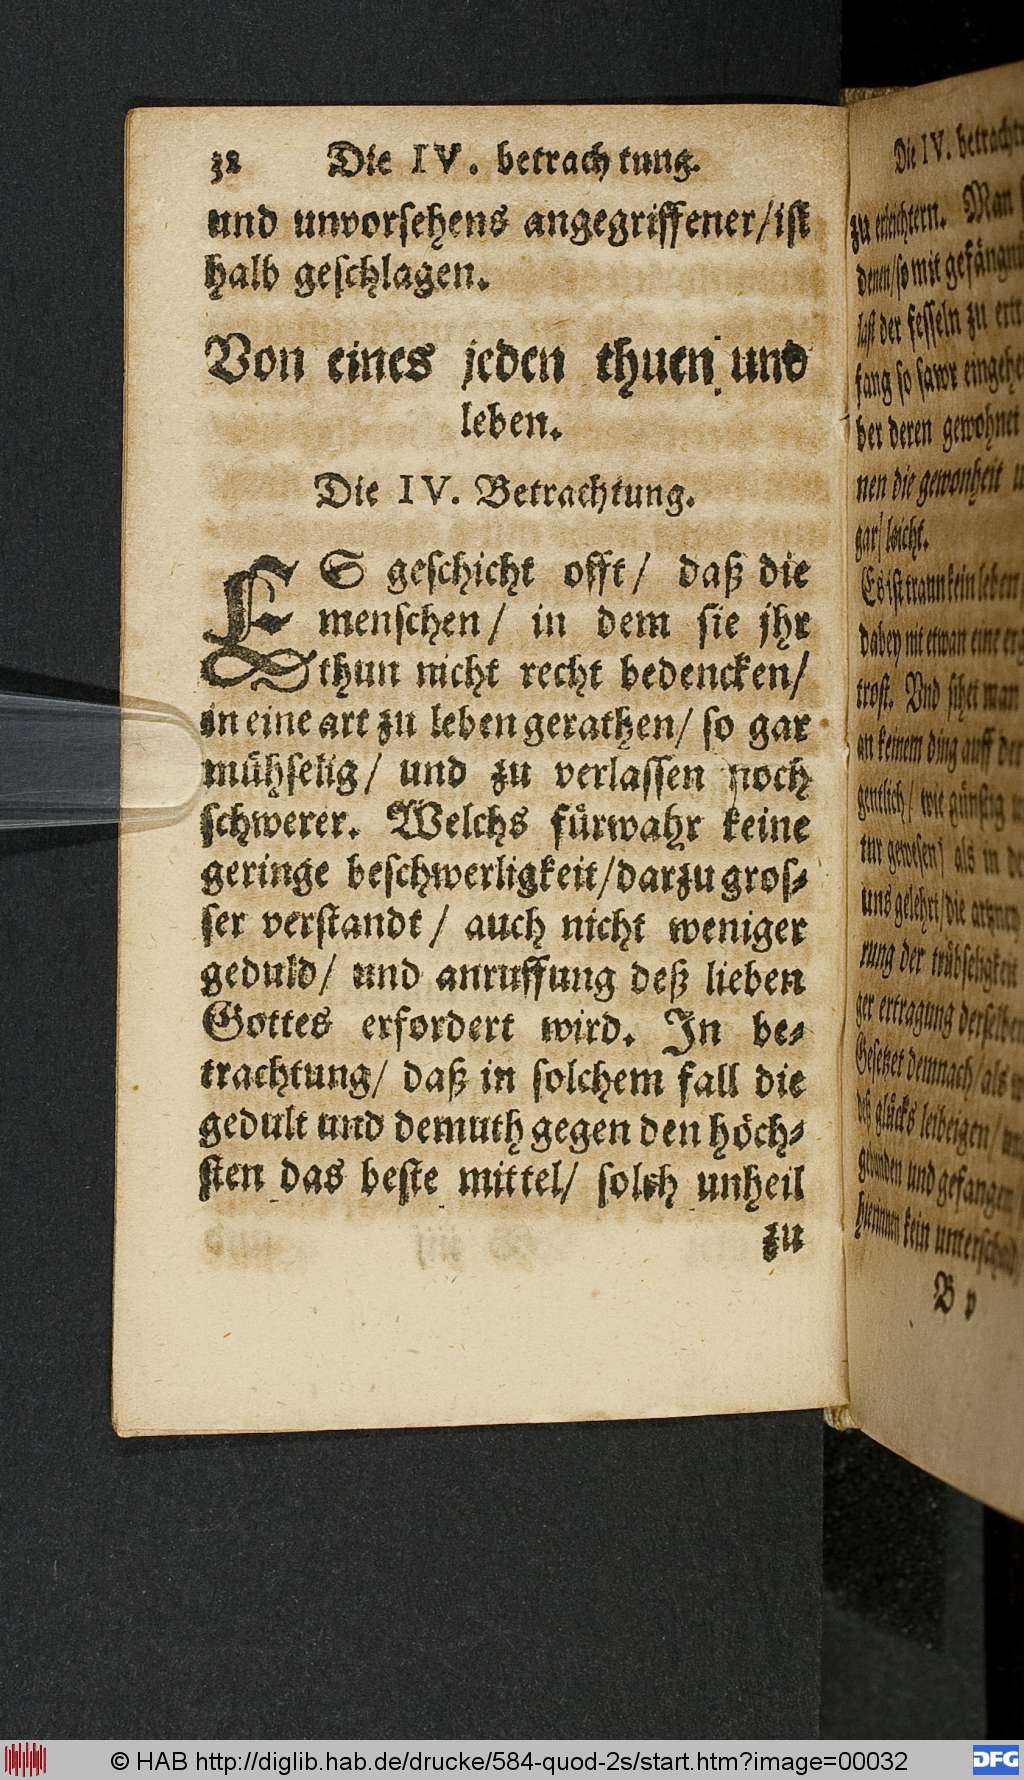 32 Die IV. betrachtung.
und unvorsehens angegriffener/ist
halb geschlagen.
Von eines jeden thuen und
leben.
Die IV. Betrachtung.
ES geschicht offt/ daß die
menschen/ in dem sie jhr
thun nicht recht bedencken/
in eine art zu leben gerathen/ so gar
mühselig/ und zu verlassen noch
schwerer. Welchs fürwahr keine
geringe beschwerligkeit/darzu gros-
ser verstandt/ auch nicht weniger
geduld/ und anruffung deß lieben
Gottes erfordert wird. In be-
trachtung/ daß in solchem fall die
gedult und demuth gegen den höch-
sten das beste mittel/ solch unheil
zu
Die IV. betracht
zu erleichtern. Man
denen/so mit gefängnü
last der fesseln zu ertr
fang so sawr eingehe
ber deren gewohnet
nen die gewonheit
gar leicht.
Es ist traun kein leben
dabey nit etwan eine
trost. Vnd sihet man
an keinem ding auff der
gentlich/ wie günstig
tur gewesen/ als in de
uns gelehrt/die artzney
rung der trübseligkeit
ger ertragung derselben
Gesetzet demnach/ als
deß glücks leibeigen/
gebunden und gefangen
hierinnen kein unterscheid
B v
© HAB http://diglib.hab.de/drucke/584-quod-2s/start.htm?image=00032
DFG